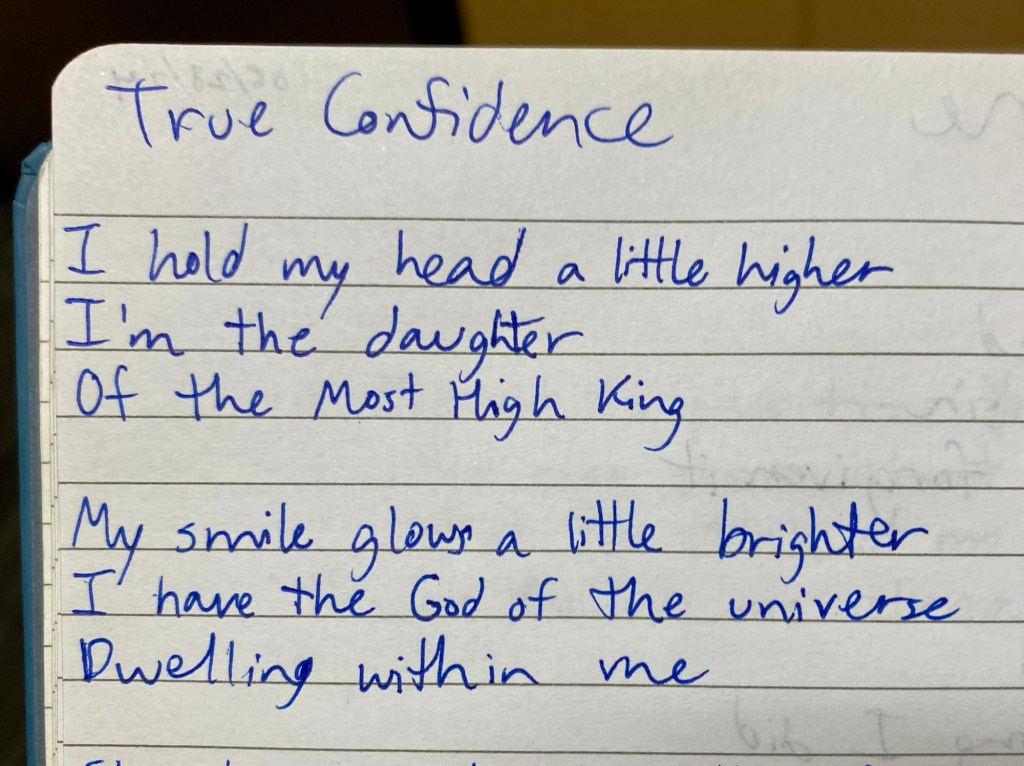 True Confidence
I hold my head a little higher
I'm the daughter
Of the Most High King
My smile glows a little brighter
I have the God of the universe
Dwelling within me